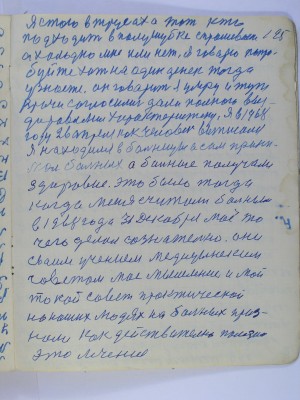 Я стою в трусах а тот кто
подходит в полушубке спрашивает 125
а холодно мне или нет, я говорю попро-
буйте хоть на один денек тогда
узнаете. он говорит я умру и тут
врачи согласились дали полного
характеристику. Я в 1968
году 28 апреля как человек выписали
я находился в больнице а сам прини-
мал больных а больные получали
здоровие. Это было тогда
когда меня считали больным
в 1964 года 31 декабря мое то
чего делал сознательно. они
своим учением медицинским
советом мое мышление и мой
такой совет практической
на наших людях на больных приз-
нали как действительно
это лечение